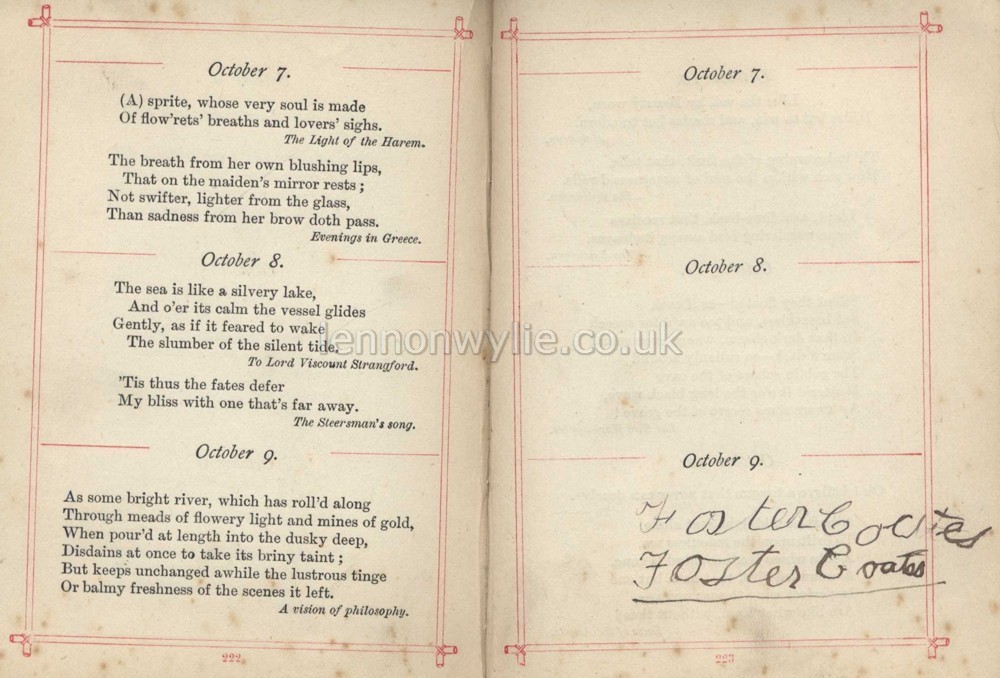 October 7.
(A) sprite, whose very soul is made
Of flow'rets' breaths and lovers' sighs.
The Light of the Harem.
The breath from her own blushing lips,
That on the maiden's mirror rests ;
Not swifter, lighter from the glass,
Than sadness from her brow doth pass.
Evenings in Greece.
October 8.
The sea is like a silvery lake,
And o'er its calm the vessel glides
Gently, as if it feared to wake
The slumber of the silent tide.
To Lord Viscount Strangford.
'Tis thus the fates defer
My bliss with one that's far away.
The Steersman's song.
October 9.
As some bright river, which has roll'd along
Through meads of flowery light and mines of gold,
When pour'd at length into the dusky deep,
Disdains at once to take its briny taint ;
But keeps unchanged awhile the lustrous tinge
Or balmy freshness of the scenes it left.
A vision of philosophy.
222
October 7.
October 8.
October 9.
Foster Coates
Foster Coates
223
lennonwylie.co.uk